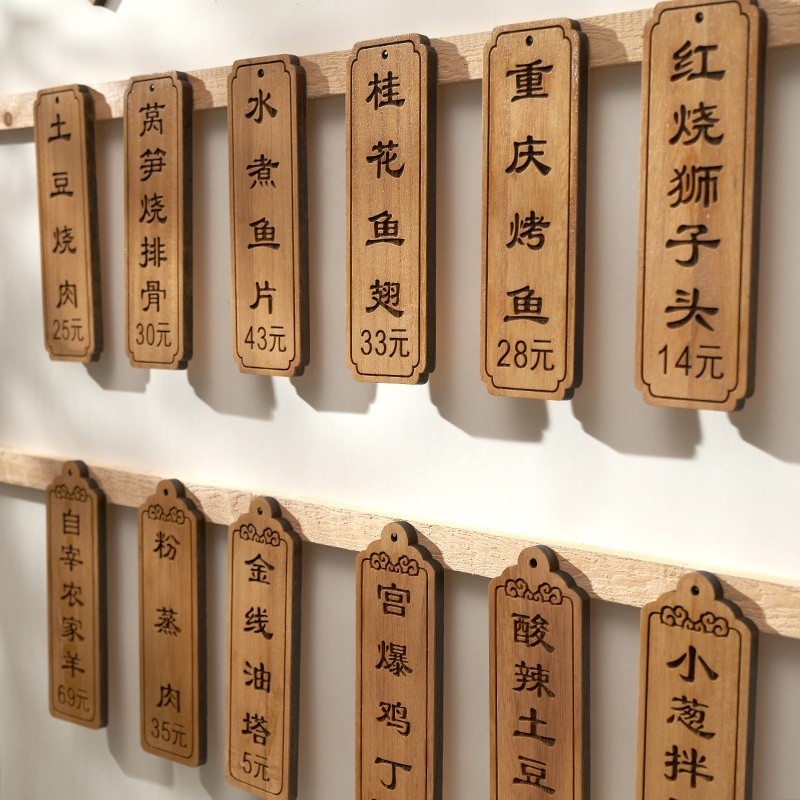 土豆烧肉
25元
莴笋烧排骨
30元
水煮鱼片
43元
桂花鱼翅
33元
重庆烤鱼
28元
红烧狮子头
14元
自宰农家羊
69元
粉蒸肉
35元
金线油塔
5元
宫爆鸡丁
酸辣土豆
小葱拌